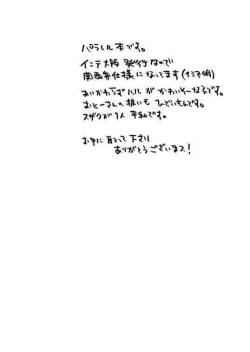 パラレル本です。
インテ大阪 発行なので
関西弁仕様になってます(イミフ明)
あいかわらずハルが かわいそーなるです。
おとーさんの扱いも ひどいもんです。
スザクが1人 平和です。
お手に取って下さり
ありがとうございまス!